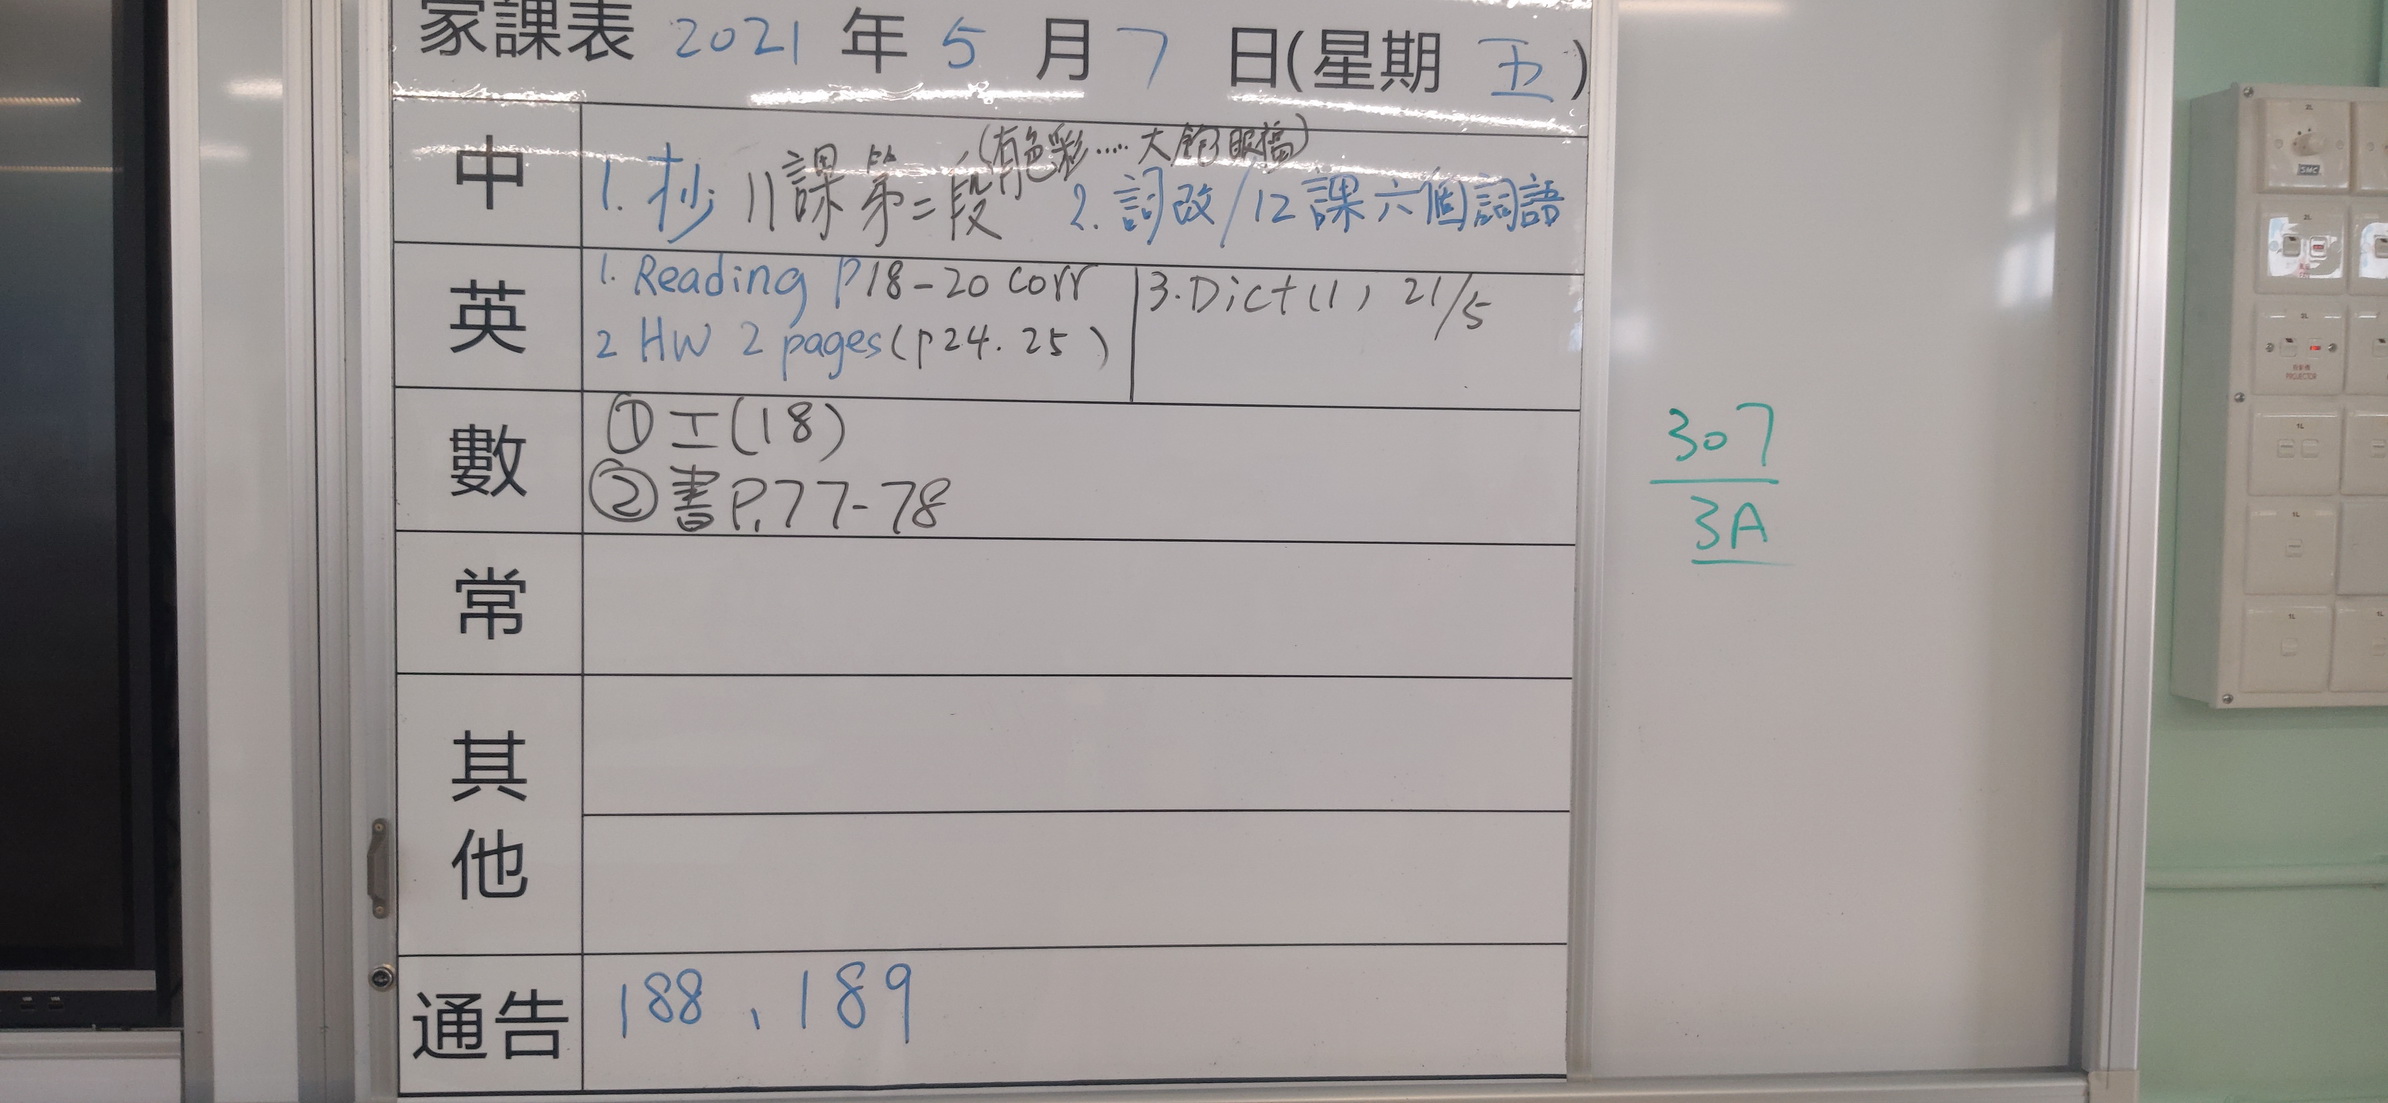 家課表 2021 年 5 月 7 日(星期 五)
中
(有色彩.....大飽眼福)
1. 抄 11課第二段 2. 詞改/12課六個詞語
英
1. Reading P18-20 corr
2 HW 2 pages(p24.25)
3. Dict(1) 21/5
數
① 工(18)
② 書P.77-78
常
其他
通告
188、189
307
3A
PROJECTOR